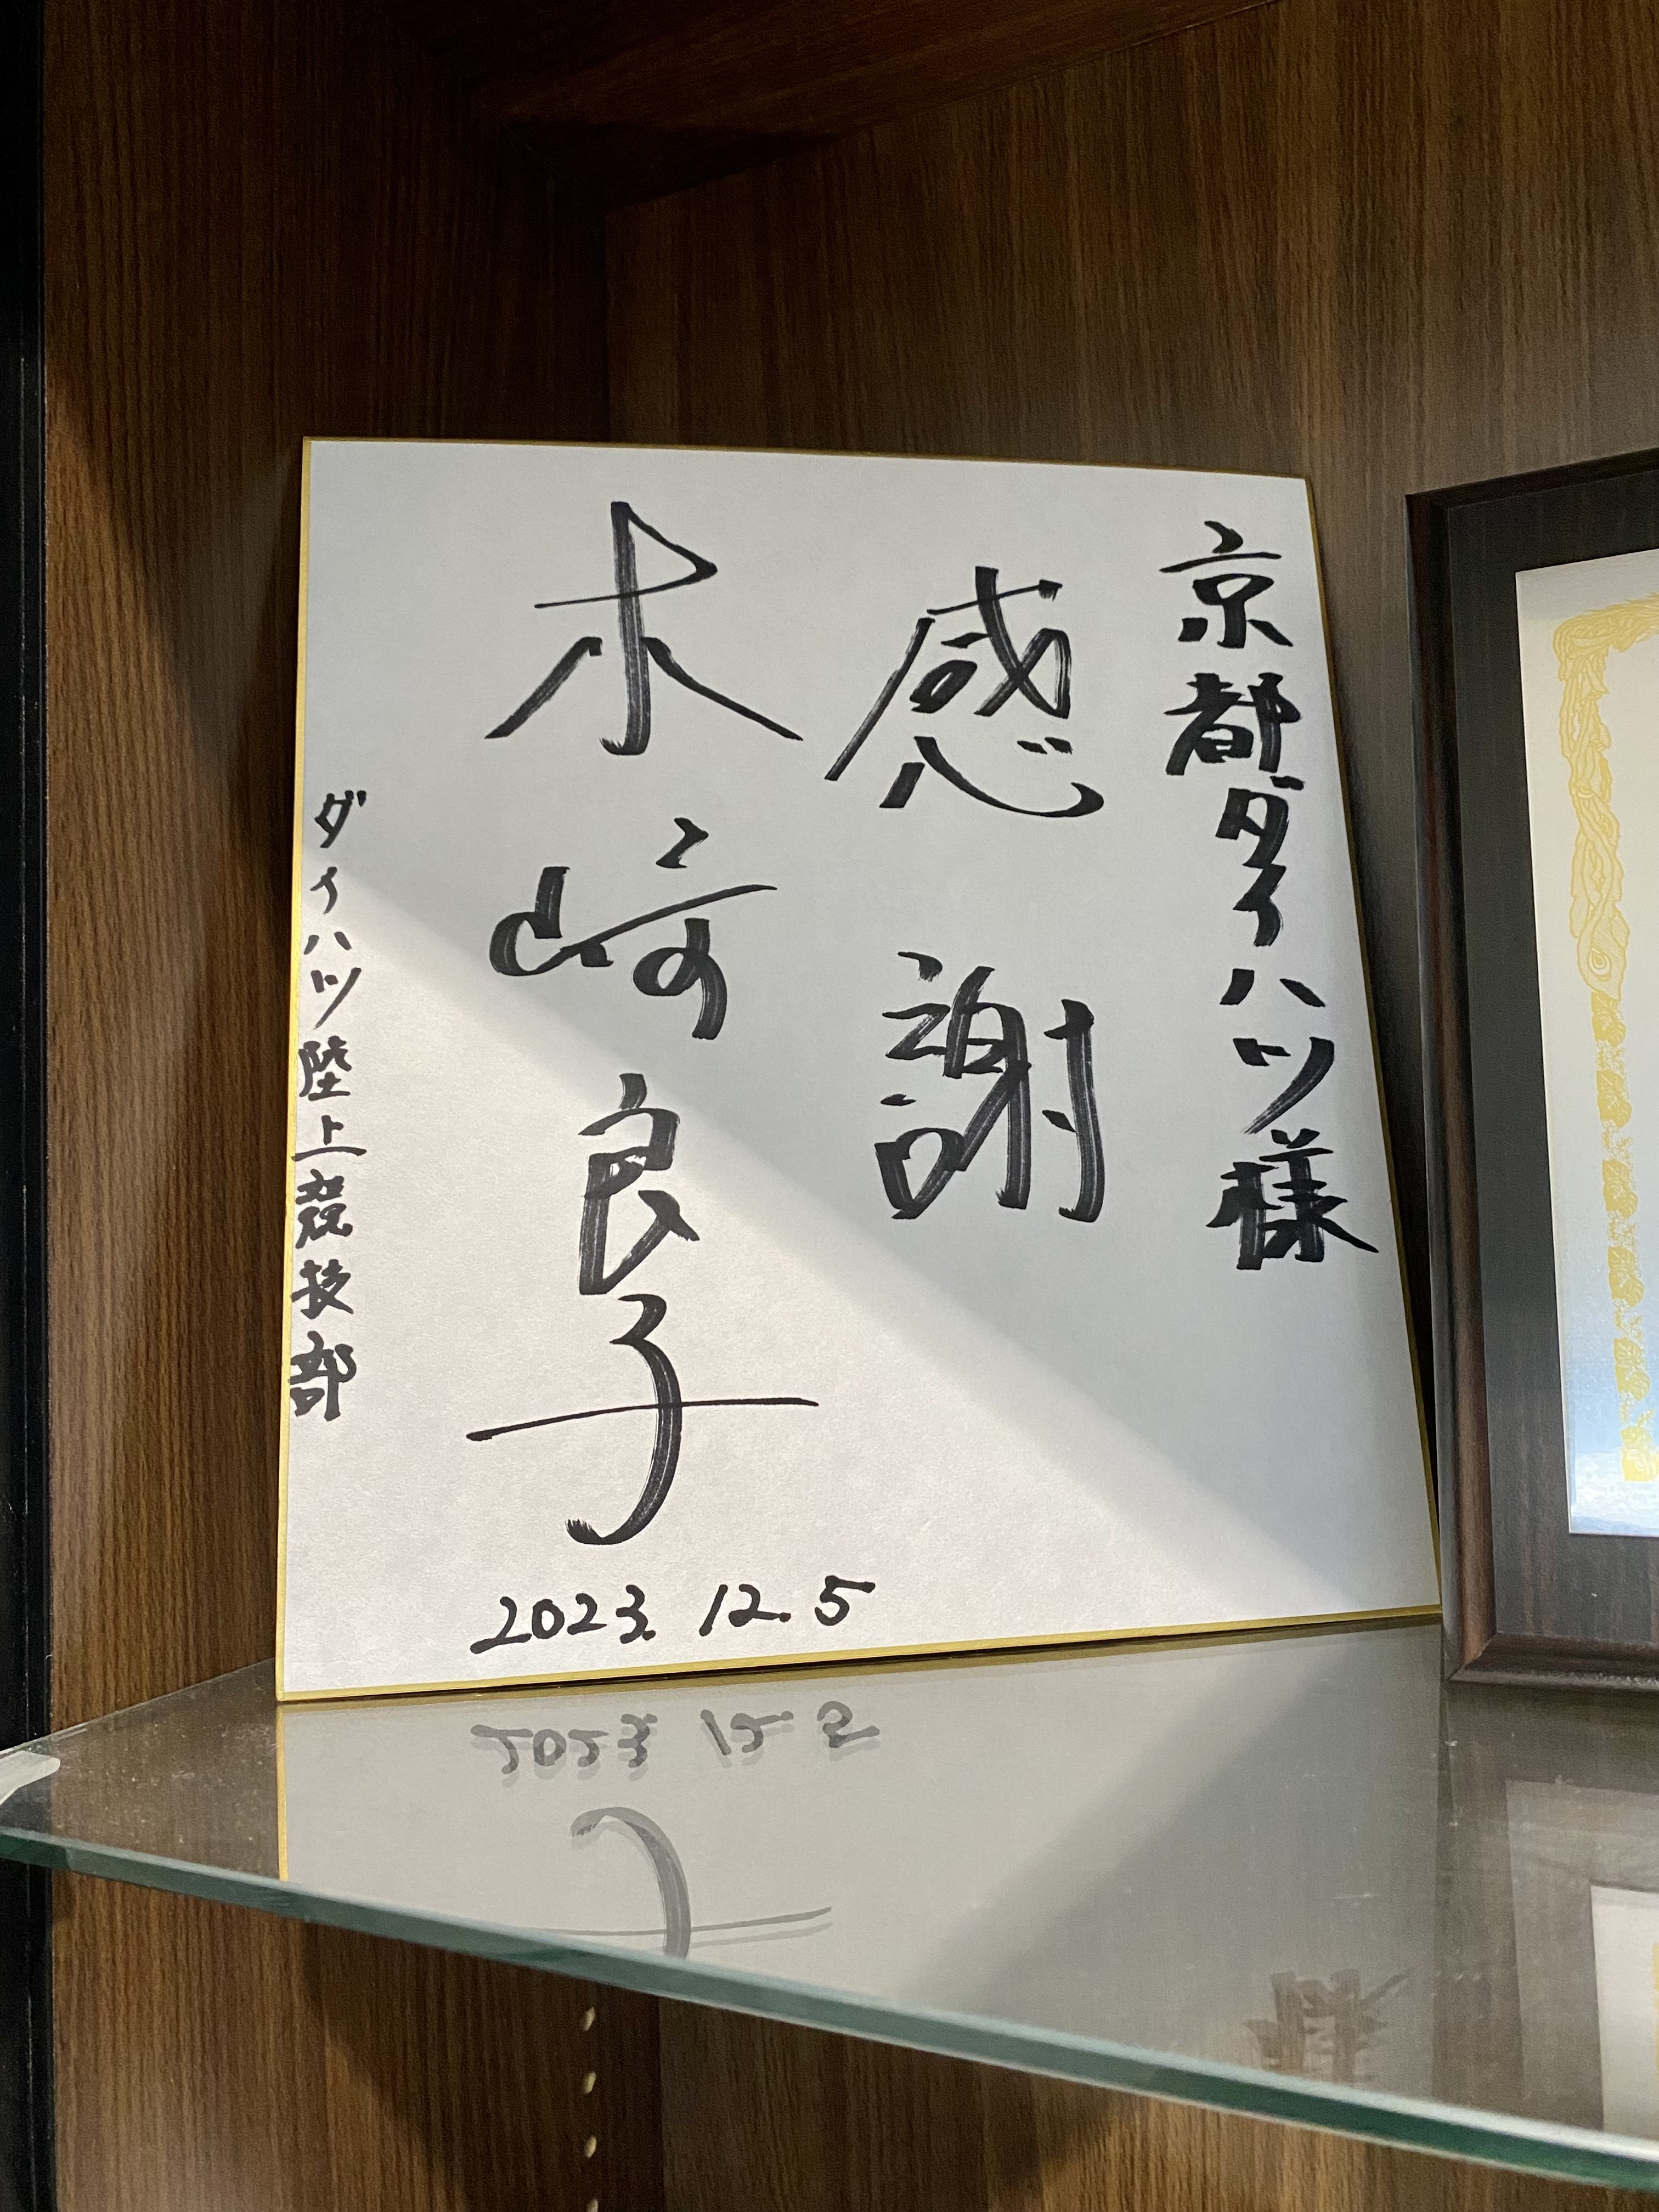 京都ダイハツ様
感謝
木崎良子
ダイハツ陸上競技部
2023.12.5